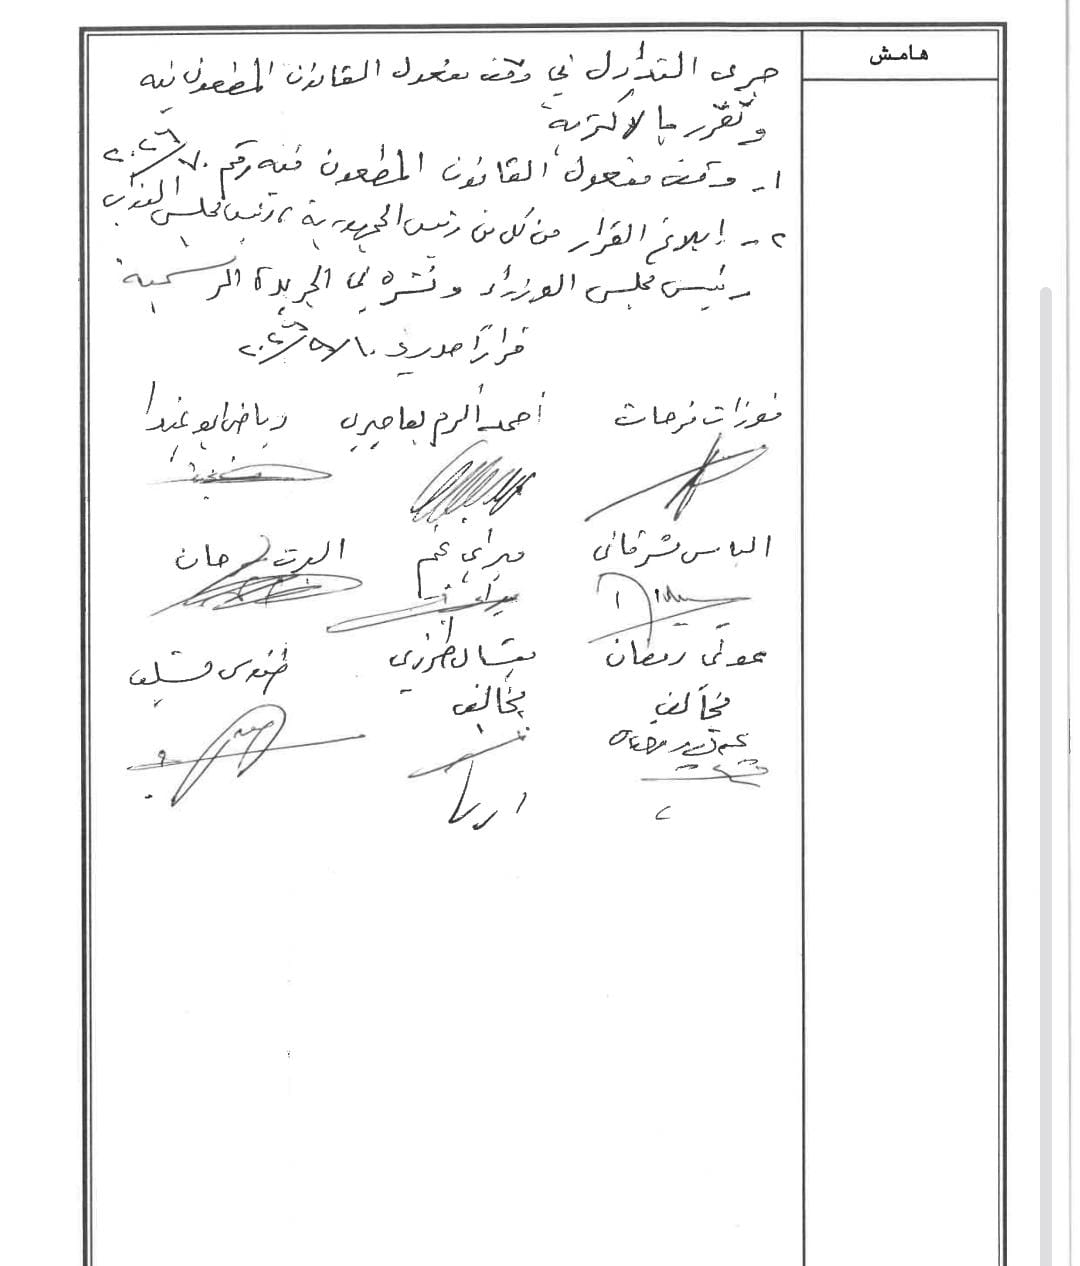 هامش
جرى التداول في وقف مفعول القانون المطعون فيه
وتقرر بالاكثرية
١- وقف مفعول القانون المطعون فيه رقم ٧٠/٢٠٢٦
٢- إبلاغ القرار من كل من رئيس الجمهورية، رئيس مجلس النواب
رئيس مجلس الوزراء ونشره في الجريدة الرسمية
قراراً صدر في
فوزات فرحات
أحمد أكرم بعاصيري
رياض أبو غيدا
الياس مشرقاني
ميراي نجم
البرت سرحان
عوني رمضان
ميشال طرزي
طنوس مشلب
مخالف
مخالف